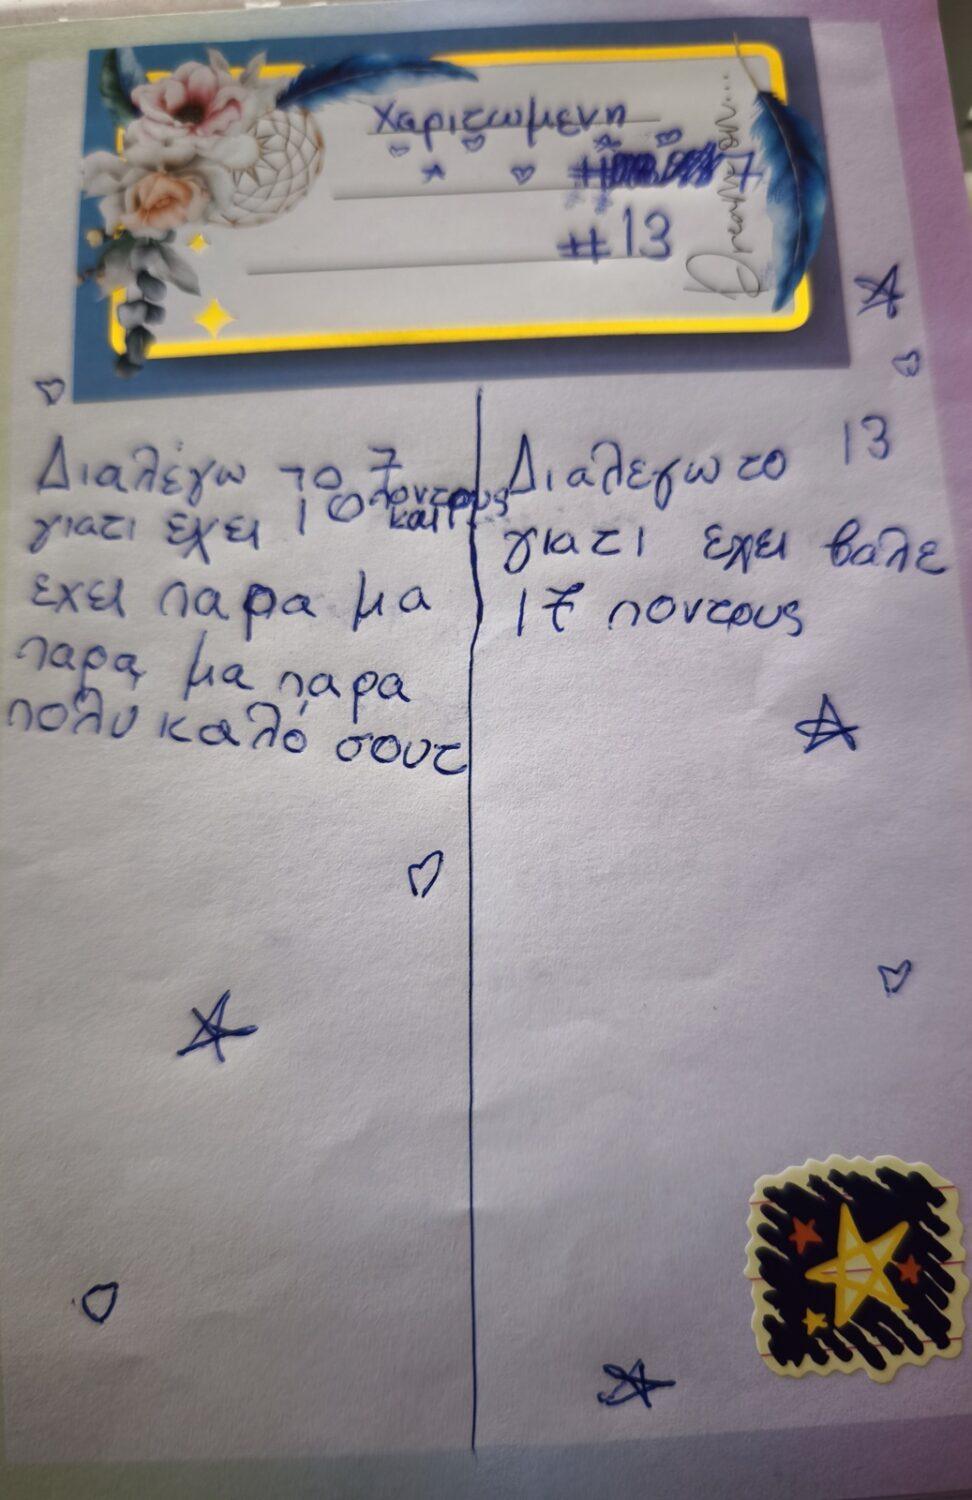 Χαριτωμενη
#7
#13
Dream on...
Διαλέγω το 7
γιατι έχει 10 ποντους
και
εχει παρα μα
παρα μα παρα
πολυ καλό σουτ
Διαλεγω το 13
γιατι εχει βαλε
17 ποντους